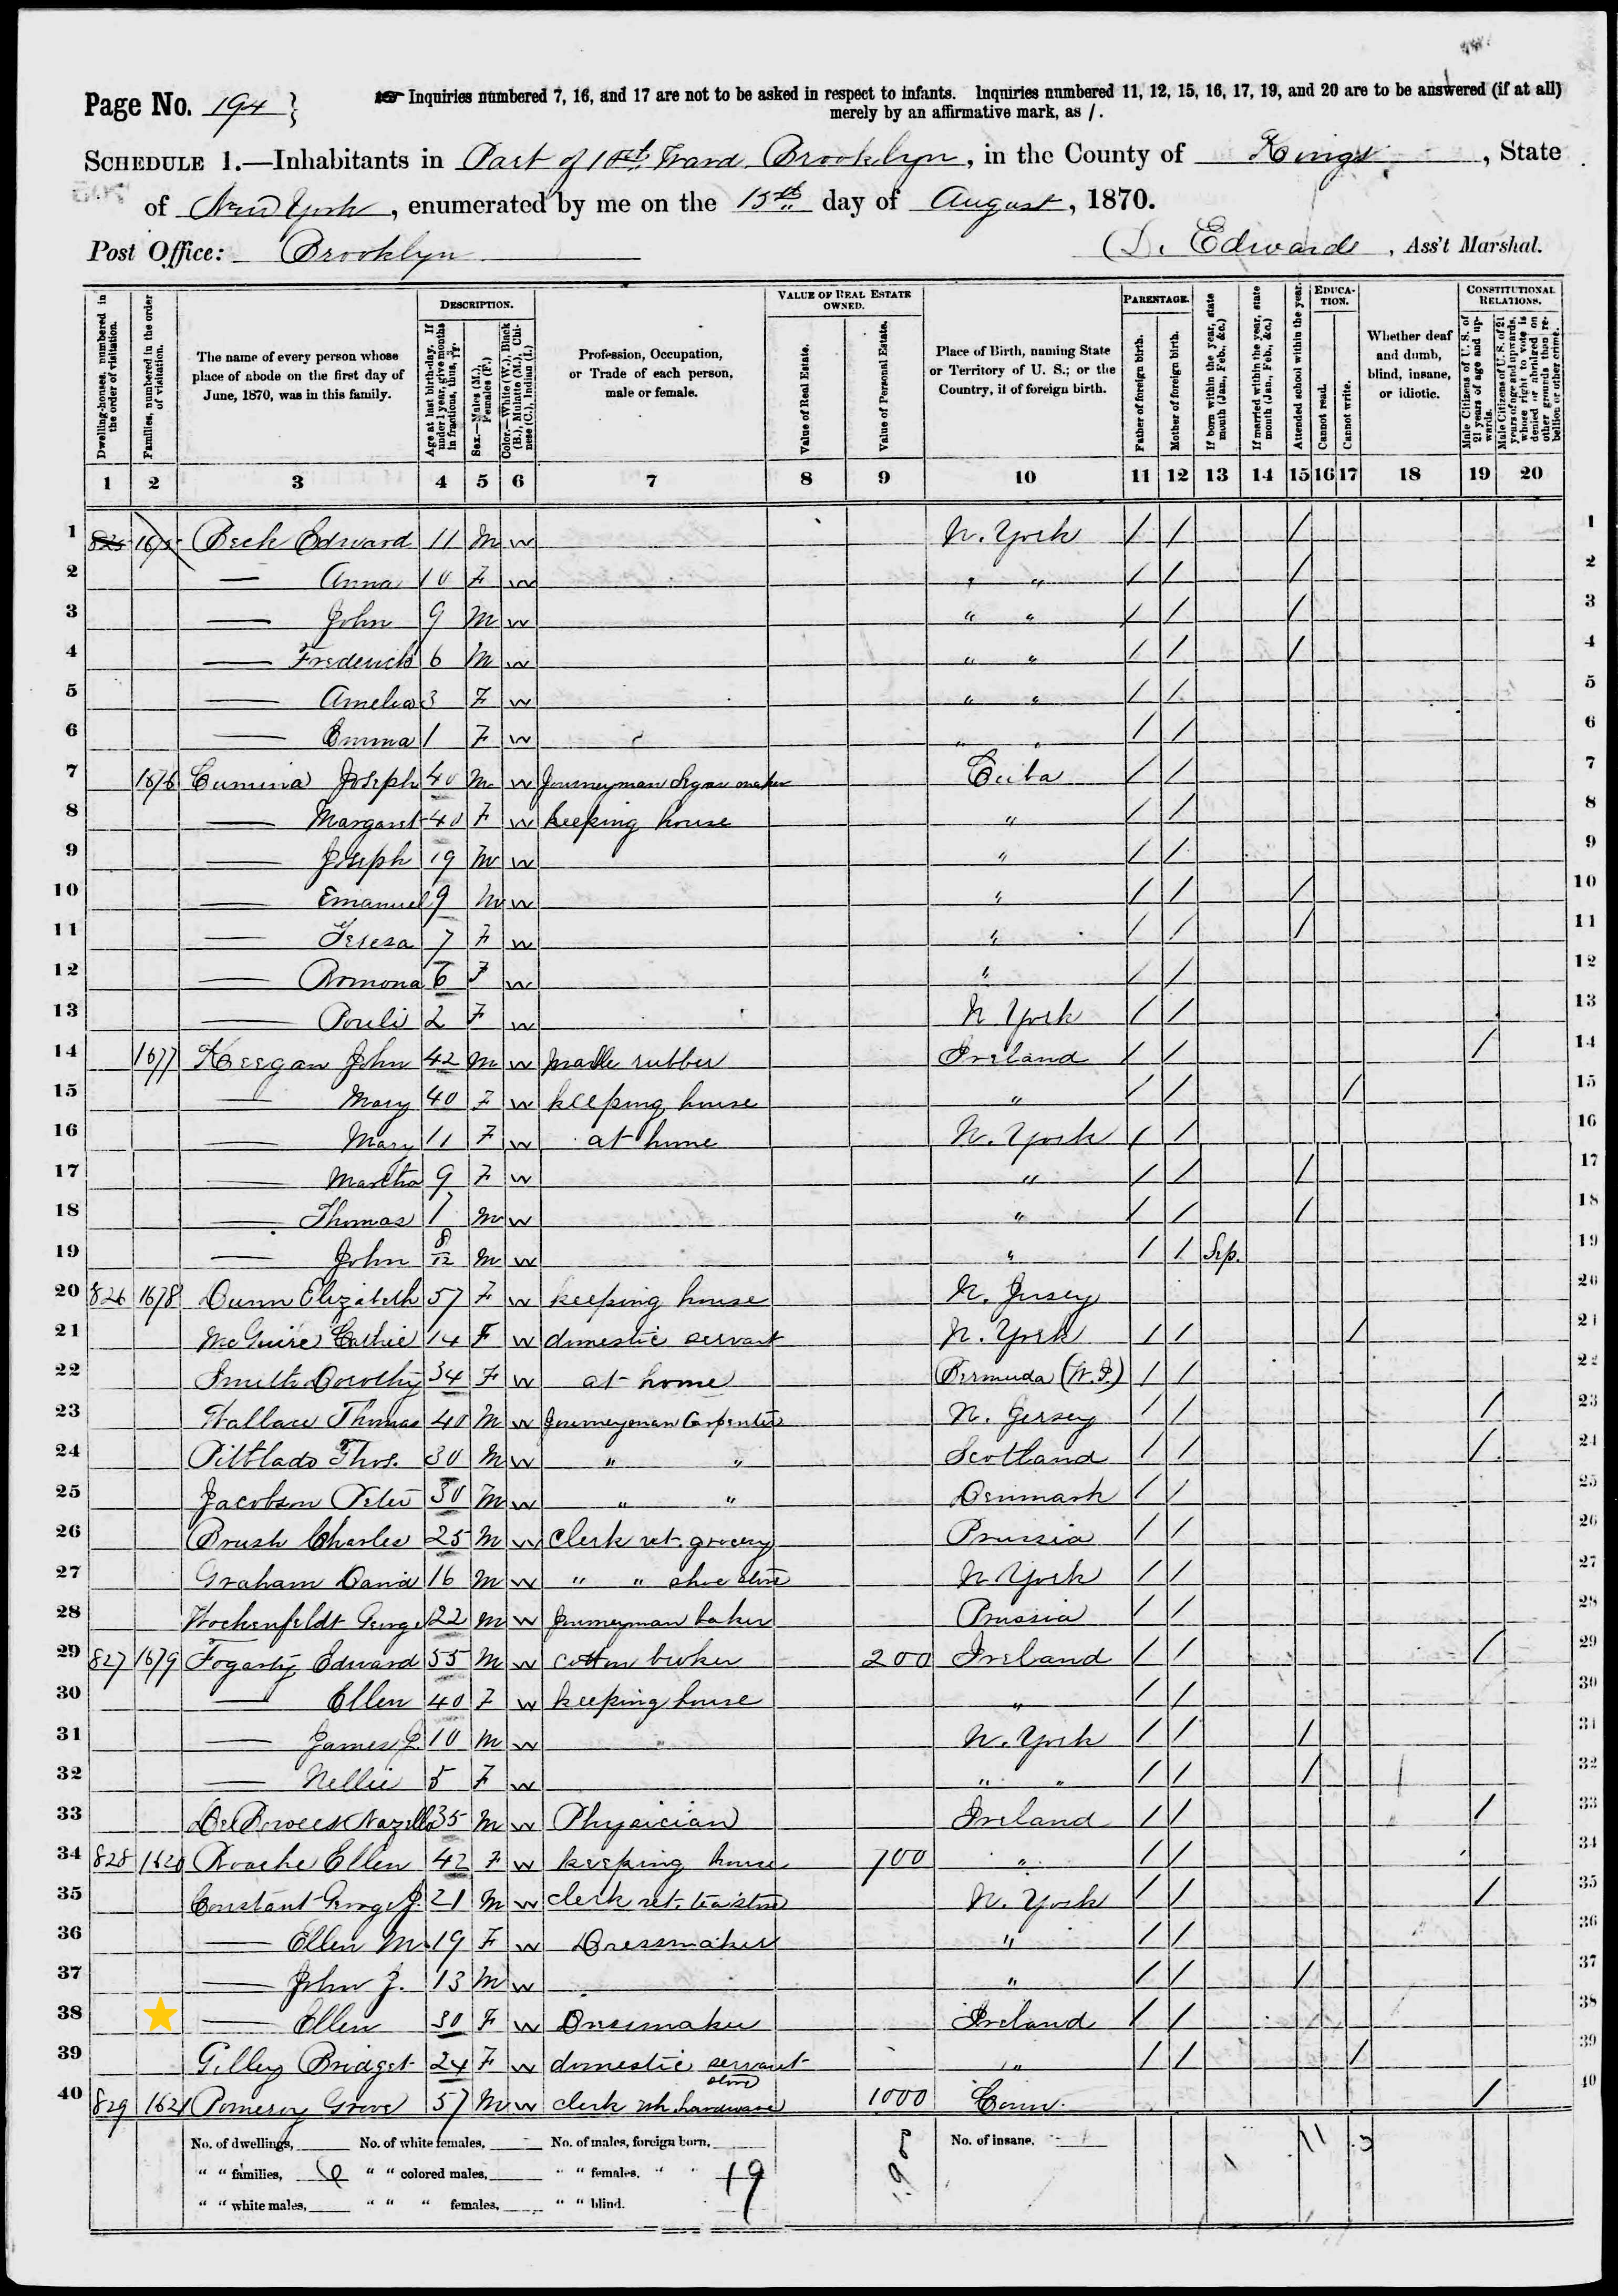 Page No. 194
Inquiries numbered 7, 16, and 17 are not to be asked in respect to infants. Inquiries numbered 11, 12, 15, 16, 17, 19, and 20 are to be answered (if at all)
merely by an affirmative mark, as /.
SCHEDULE 1.—Inhabitants in Part of Ward Brooklyn, in the County of Kings, State
of New York, enumerated by me on the 15th day of August, 1870.
Post Office: Brooklyn
Edwards, Ass't Marshal.
Dwelling-houses, numbered in the order of visitation.
Families, numbered in the order of visitation.
The name of every person whose place of abode on the first day of June, 1870, was in this family.
DESCRIPTION.
Age at last birth-day. If under 1 year, give months in fractions, thus, 3/12.
Sex.—Males (M.), Females (F.)
Color.—White (W.), Black (B.), Mulatto (M.), Chinese (C.), Indian (I.)
Profession, Occupation, or Trade of each person, male or female.
VALUE OF REAL ESTATE OWNED.
Value of Real Estate.
Value of Personal Estate.
Place of Birth, naming State or Territory of U. S.; or the Country, if of foreign birth.
PARENTAGE.
Father of foreign birth.
Mother of foreign birth.
If born within the year, state month (Jan., Feb., &c.)
If married within the year, state month (Jan., Feb., &c.)
Attended school within the year.
EDUCATION.
Cannot read.
Cannot write.
Whether deaf and dumb, blind, insane, or idiotic.
CONSTITUTIONAL RELATIONS.
Male Citizens of U. S. of 21 years of age and upwards.
Male Citizens of U. S. of 21 years of age and upwards, whose right to vote is denied or abridged on other grounds than rebellion or other crime.
1 2 3 4 5 6 7 8 9 10 11 12 13 14 15 16 17 18 19 20
1 Edward 11 M W N. York / / / 1
2 — Anna 10 F W " " / / / 2
3 — John 9 M W " " / / / 3
4 — Frederick 6 M W " " / / / 4
5 — Amelia 3 F W " " / / 5
6 — Emma 1 F W " " / / 6
7 1676 Cumina Joseph 40 M W Journeyman Segar maker Cuba / / 7
8 — Margaret 40 F W keeping house " / / 8
9 — Joseph 19 M W " / / 9
10 — Emanuel 9 M W " / / / 10
11 — Teresa 7 F W " / / / 11
12 — Romona 6 F W " / / 12
13 — 2 F W N York / / 13
14 1677 Keegan John 42 M W rubber Ireland / / / 14
15 — Mary 40 F W keeping house " / / / 15
16 — Mary 11 F W at home N. York / / 16
17 — Martha 9 F W " / / / 17
18 — Thomas M W " / / / 18
19 — John 8/12 M W " / / Sep. 19
20 826 1678 Dunn Elizabeth 57 F W keeping house N. Jersey 20
21 McGuire Cathie 14 F W domestic servant N. York / / / 21
22 Smith Dorothy 34 F W at home Bermuda (W.I.) / / 22
23 Wallace Thomas 40 M W Journeyman Carpenter N. Jersey / / / 23
24 Pitblado Thos. 30 M W " " Scotland / / / 24
25 Jacobson Peter 30 M W " " Denmark / / 25
26 Brush Charles 25 M W Clerk ret. grocery Prussia / / 26
27 Graham David 16 M W " " shoe store N York / / 27
28 Wockenfeldt George 22 M W Journeyman baker Prussia / / 28
29 827 1679 Fogarty Edward 55 M W cotton broker 200 Ireland / / / 29
30 — Ellen 40 F W keeping house " / / 30
31 — James J. 10 M W N. York / / / 31
32 — Nellie 5 F W " " / / / 32
33 35 M W Physician Ireland / / / 33
34 828 1620 Roache Ellen 42 F W keeping house 700 " / / 34
35 Constant George J. 21 M W clerk ret. tea store N. York / / / 35
36 — Ellen M. 19 F W Dressmaker " / / 36
37 — John J. 13 M W " / / / 37
38 — Ellen 30 F W Dressmaker Ireland / / 38
39 Gilley Bridget 24 F W domestic servant " / / / 39
40 829 1621 Pomeroy Grove 57 M W clerk wh. hardware store 1000 Conn. / 40
No. of dwellings, No. of white females, No. of males, foreign born, No. of insane,
" " families, 6 " " colored males, " " females, " " 19 1900 11 3
" " white males, " " " females, " " blind.